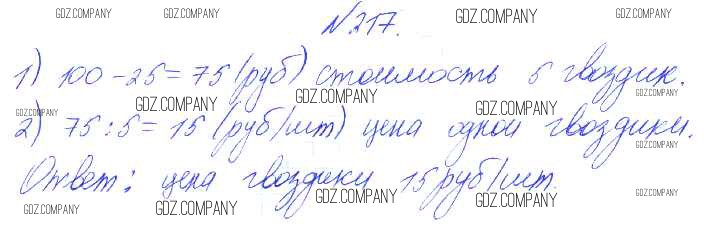 GDZ.COMPANY GDZ.COMPANY № 217. GDZ.COMPANY GDZ.COMPANY
1) 100 - 25 = 75 (руб) стоимость 5 гвоздик.
GDZ.COMPANY GDZ.COMPANY GDZ.COMPANY GDZ.COMPANY
2) 75 : 5 = 15 (руб/шт) цена одной гвоздики.
GDZ.COMPANY
Ответ: цена гвоздики 15 руб/шт.
GDZ.COMPANY GDZ.COMPANY GDZ.COMPANY GDZ.COMPANY GDZ.COMPANY